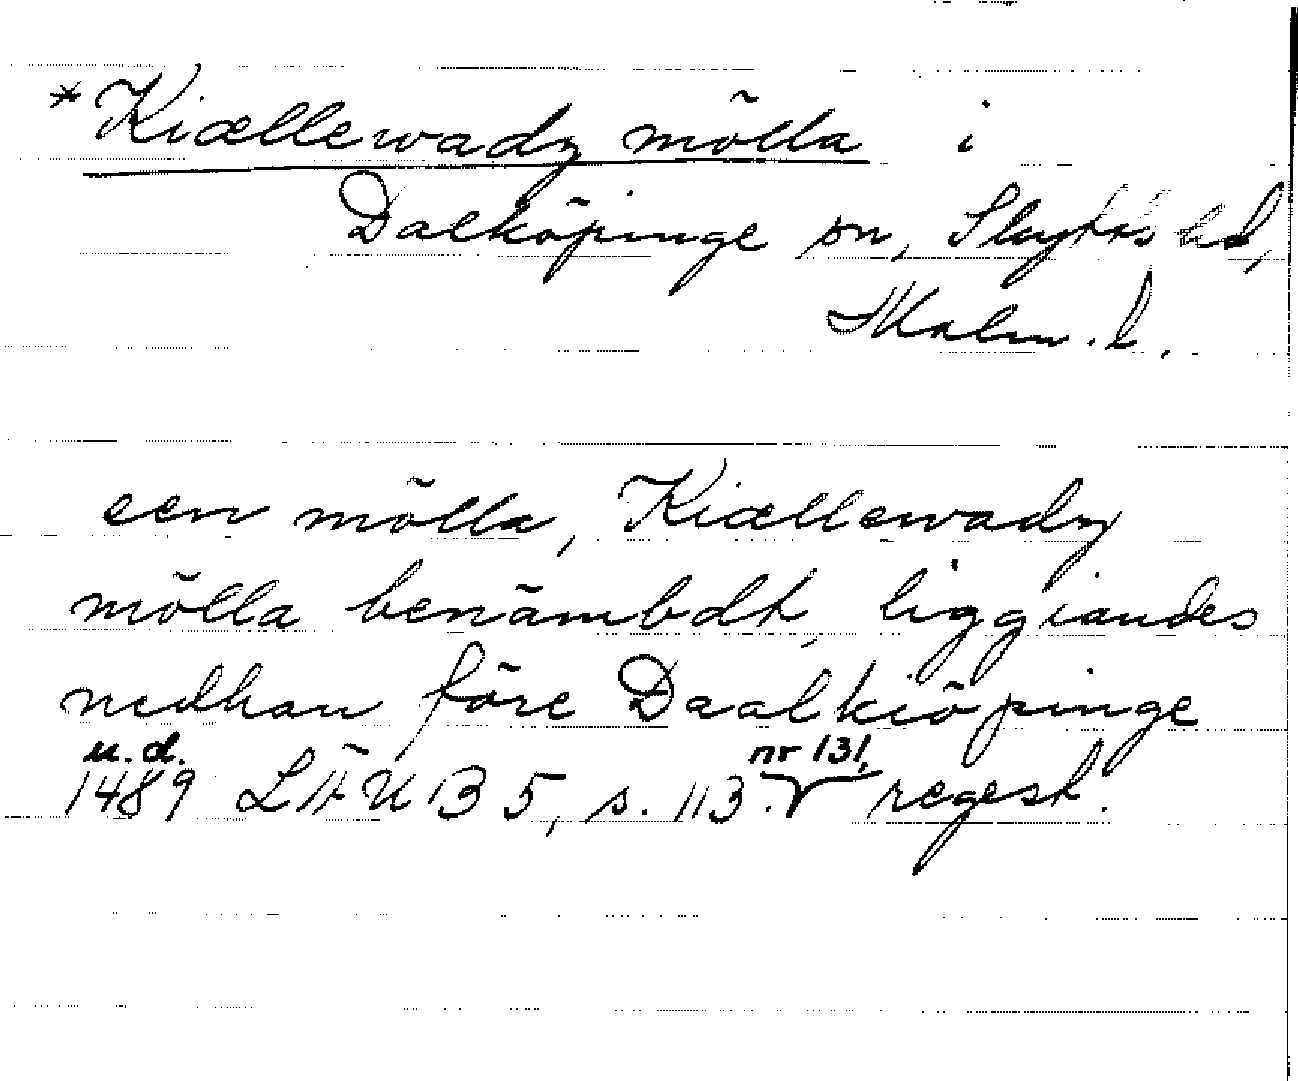 *Kiællewadz mölla i
Dalköpinge sn, Skytts hd,
Malm. l.
een mölla, Kiællewadz
mölla benämbdt, liggiandes
nedhan före Daalkiöpinge
u. d. nr 131,
1489 LÄUB 5, s. 113. V regest.